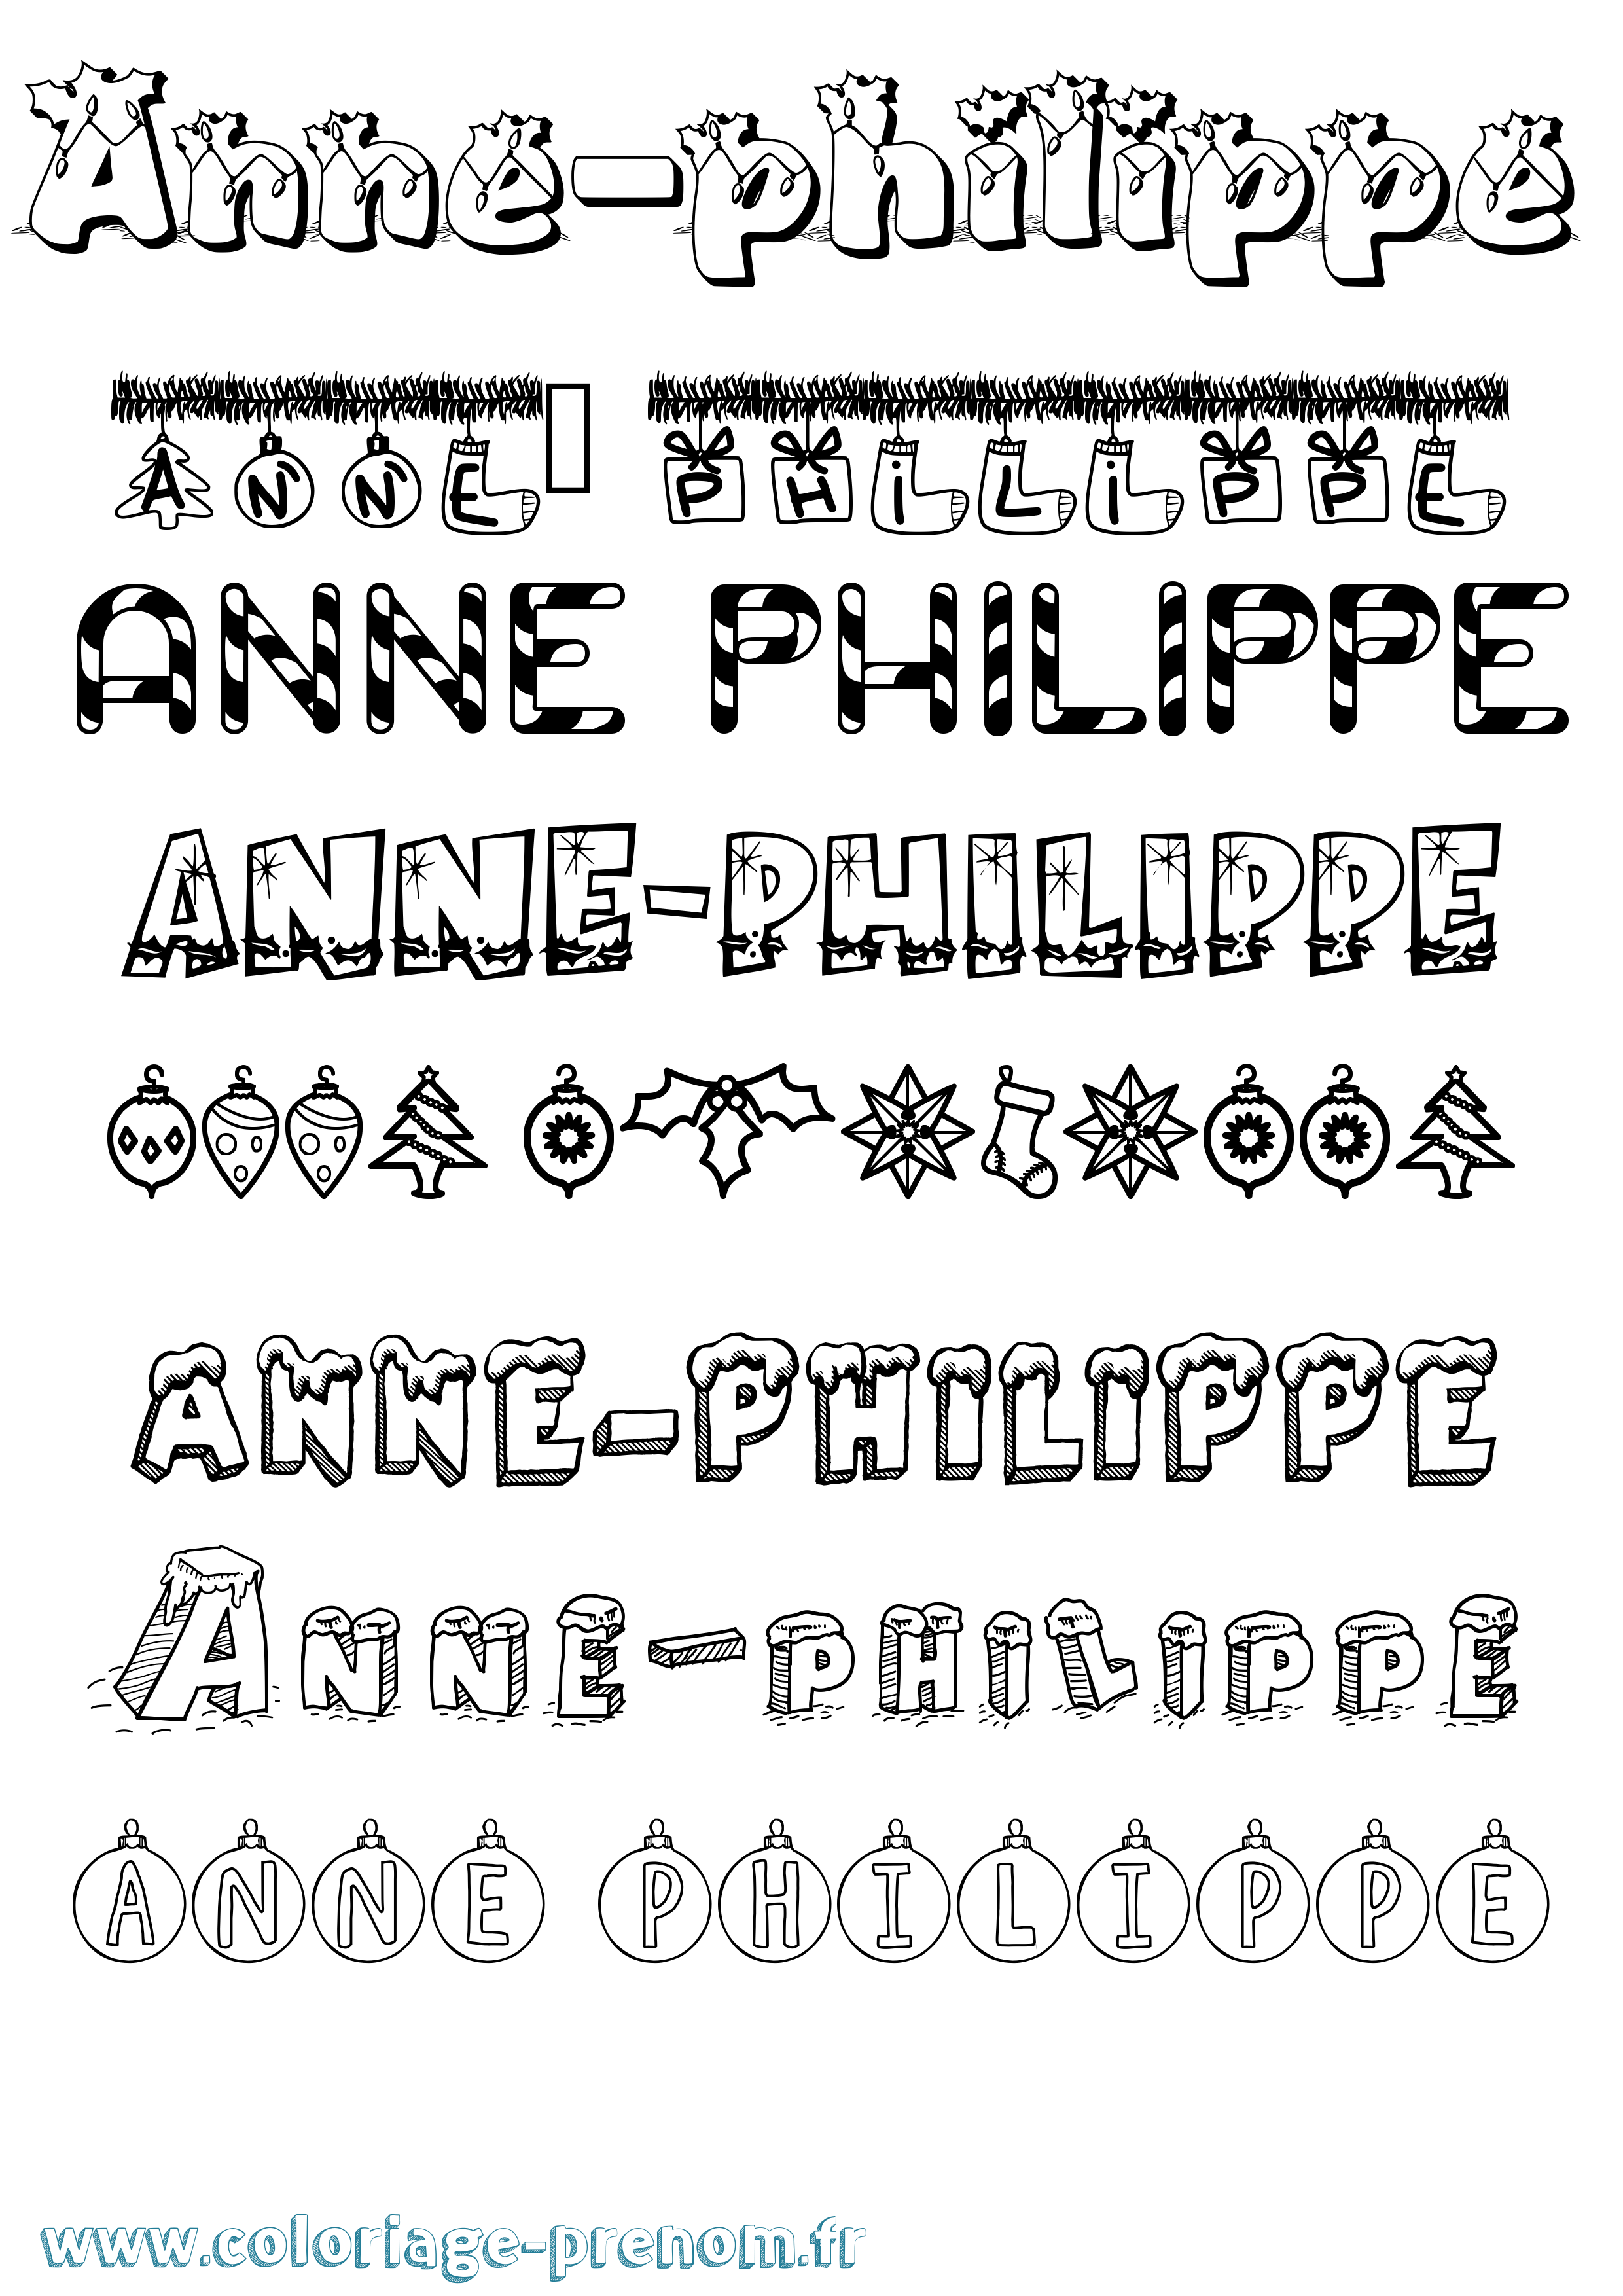 Anne-philippe
ANNE PHiLiPPE
ANNE PHILIPPE
ANNE-PHILIPPE
ANNE-PHILIPPE
ANNE-PHILIPPE
ANNE PHILIPPE
www.coloriage-prenom.fr